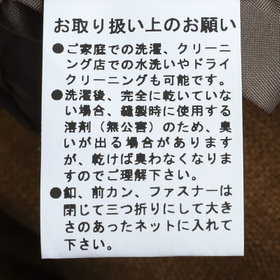 お取り扱い上のお願い
●ご家庭での洗濯、クリーニ
ング店での水洗いやドライ
クリーニングも可能です。
●洗濯後、完全に乾いていな
い場合、縫製時に使用する
溶剤（無公害）のため、臭
いが出る場合があります
が、乾けば臭わなくなりま
すのでご理解下さい。
●釦、前カン、ファスナーは
閉じて三つ折りにして大き
さのあったネットに入れて
下さい。